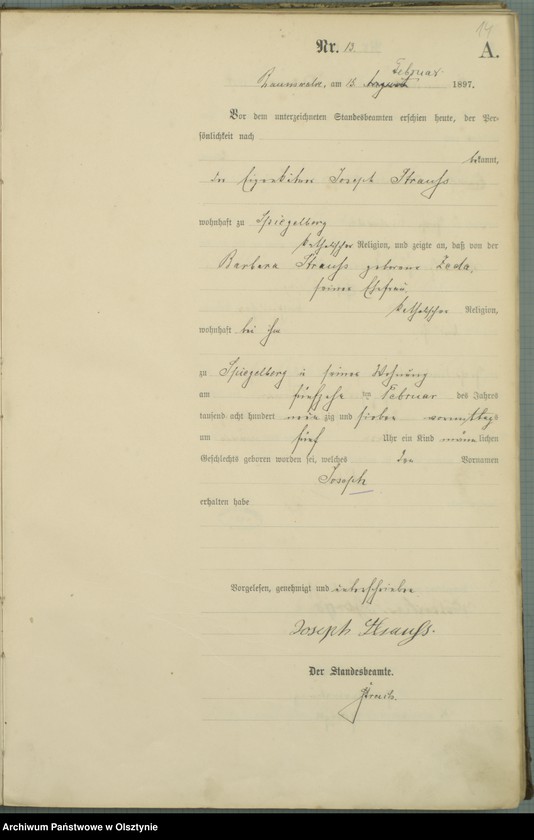 14
Nr. 13.
A.
Februar
am 18. August 1897.
Vor dem unterzeichneten Standesbeamten erschien heute, der Per-
sönlichkeit nach
bekannt,
der Joseph Strauß
wohnhaft zu Spiegelberg
katholischer Religion, und zeigte an, daß von der
Barbara Strauß geborene
seiner Ehefrau,
katholischer Religion,
wohnhaft bei ihm
zu Spiegelberg in seiner Wohnung
am fünfzehnten Februar des Jahres
tausend acht hundert neunzig und sieben vormittags
um fünf Uhr ein Kind männlichen
Geschlechts geboren worden sei, welches den Vornamen
Joseph
erhalten habe
Vorgelesen, genehmigt und unterschrieben
Joseph Strauß.
Der Standesbeamte.
Archiwum Państwowe w Olsztynie